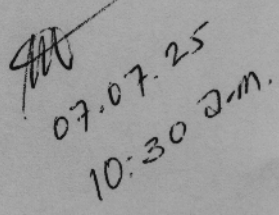 07.07.25
10:30 a.m.